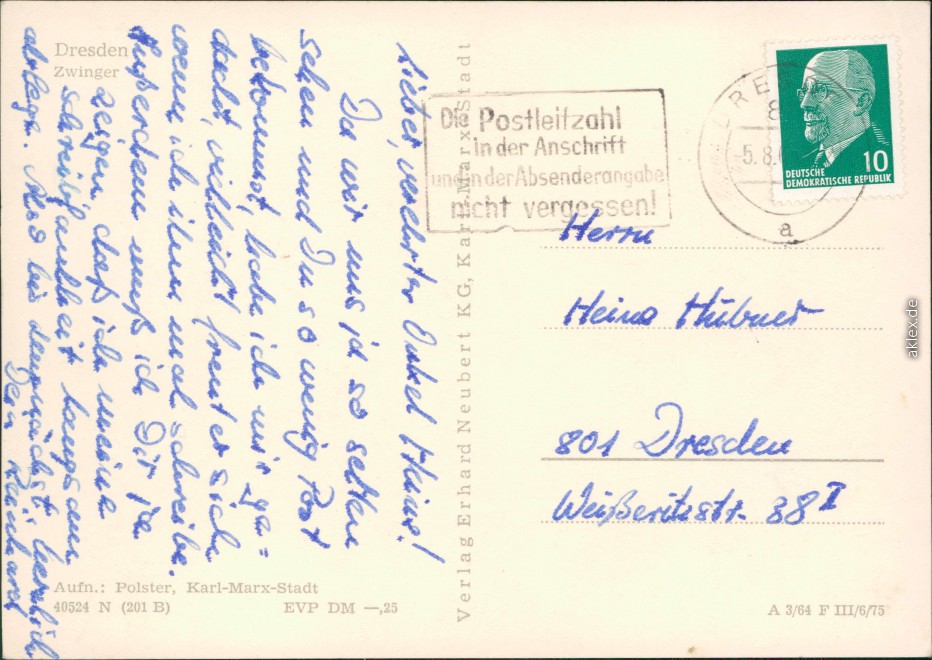 Dresden
Zwinger
Lieber, verehrter Onkel Heinz!
Da wir uns ja so selten
sehen und Du so wenig Post
bekommst, habe ich mir ge=
dacht, vielleicht freut er sich
wenn ich ihm mal schreibe.
Außerdem muß ich Dir ja
zeigen, daß ich meine
Schreibfaulheit langsam
ablege. Also bis demnächst herzlich
Dein Reinhard
Aufn.: Polster, Karl-Marx-Stadt
40524 N (201 B) EVP DM —,25
Verlag Erhard Neubert KG, Karl-Marx-Stadt
Die Postleitzahl
in der Anschrift
und in der Absenderangabe
nicht vergessen!
-5.8.
a
10
DEUTSCHE
DEMOKRATISCHE REPUBLIK
Herrn
Heinz Hübner
801 Dresden
Weißeritzstr. 38 I
A 3/64 F III/6/75
aklex.de